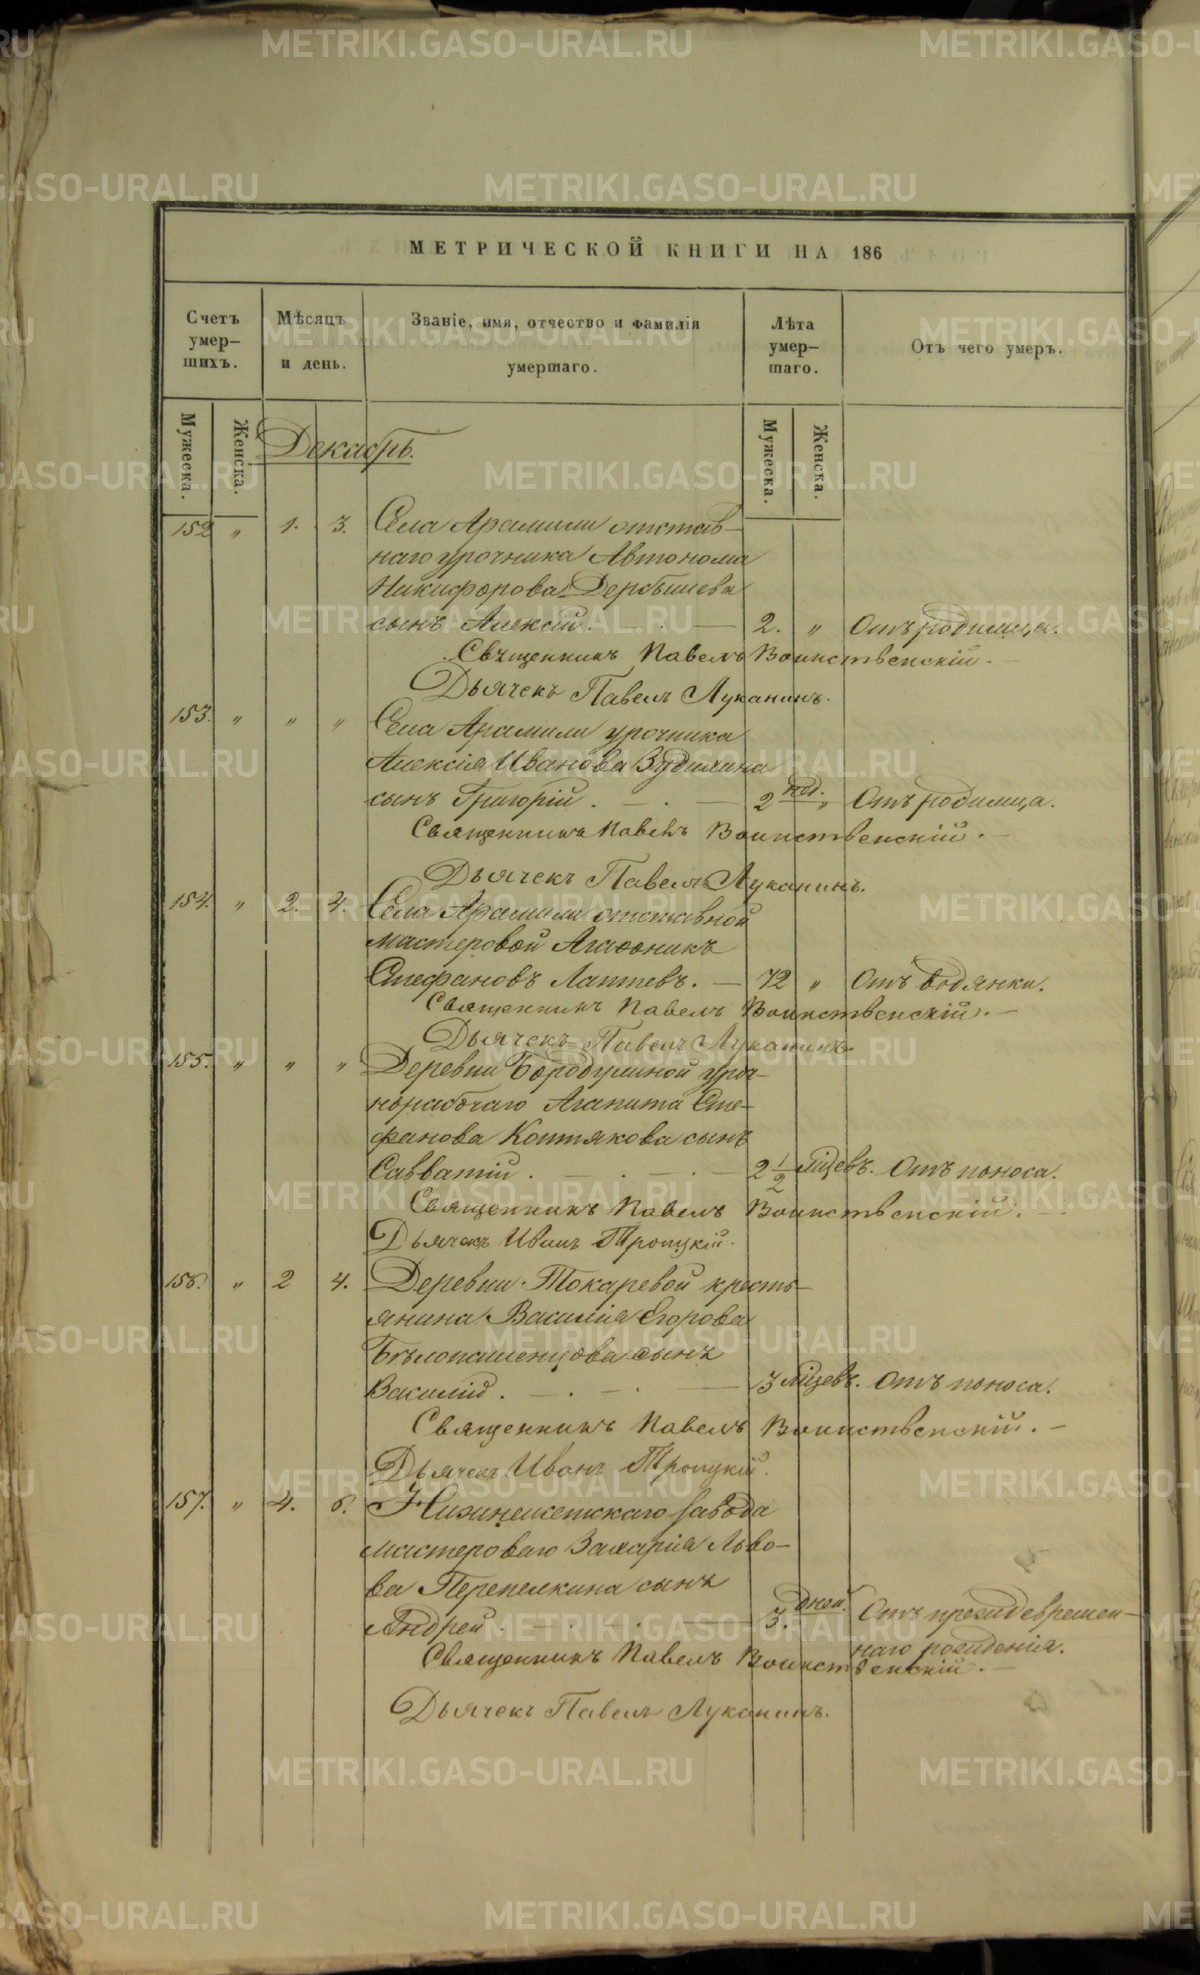 МЕТРИЧЕСКОЙ КНИГИ НА 186
Счетъ умер-шихъ.
Мѣсяцъ и день.
Званіе, имя, отчество и фамилія умершаго.
Лѣта умер-шаго.
Отъ чего умеръ.
Мужеска. Женска. Мужеска. Женска.
Декабрь.
152 " 1. 3. Села Арамили отстав-
наго урочника Автонома
Никифорова Дербышева
сынъ Алексій. 2. " Отъ родимца.
Священникъ Павелъ Воинственскій.
Дьячекъ Павелъ Луканинъ.
153. " " " Села Арамили урочника
Алексія Иванова Зудихина
сынъ Григорій. 2 нед. " Отъ родимца.
Священникъ Павелъ Воинственскій.
Дьячекъ Павелъ Луканинъ.
154. " 2. 4. Села Арамили отставной
мастеровой Агаѳоникъ
Стефановъ Лаптевъ. 72 " Отъ водянки.
Священникъ Павелъ Воинственскій.
Дьячекъ Павелъ Луканинъ
155. " " " Деревни Бородулиной уроч-
норабочаго Агапита Сте-
фанова Коптякова сынъ
Савватій. 2 1/2 мѣсцевъ. Отъ поноса.
Священникъ Павелъ Воинственскій.
Дьячекъ Иванъ Троицкій.
156. " 2 4. Деревни Токаревой кресть-
янина Василія Егорова
Бѣлопашенцова сынъ
Василій. 3 мѣсцевъ. Отъ поноса.
Священникъ Павелъ Воинственскій.
Дьячекъ Иванъ Троицкій.
157. " 4. 6. Нижнеисетскаго завода
мастероваго Захарія Льво-
ва Перепелкина сынъ
Андрей. 3. дней. Отъ преждевремен-
наго рожденія.
Священникъ Павелъ Воинственскій.
Дьячекъ Павелъ Луканинъ.
METRIKI.GASO-URAL.RU